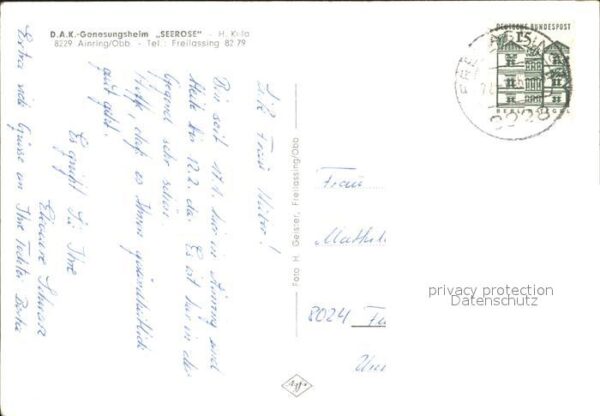 D.A.K.-Genesungsheim „SEEROSE" - H. Kr-la
8229 Ainring/Obb. - Tel.: Freilassing 82 79
Lb. Frau Huber!
Bin seit 17.1. hier in Ainring und
bis 12.2. da. Es ist hier in der
Gegend sehr schön.
Hoffe, daß es Ihnen gesundheitlich
gut geht.
Es grüßt Sie Ihre
Extra viele Grüsse an Ihre Tochter
Foto H. Geisler, Freilassing/Obb
DEUTSCHE BUNDESPOST
15
8228
Frau
8024
privacy protection
Datenschutz